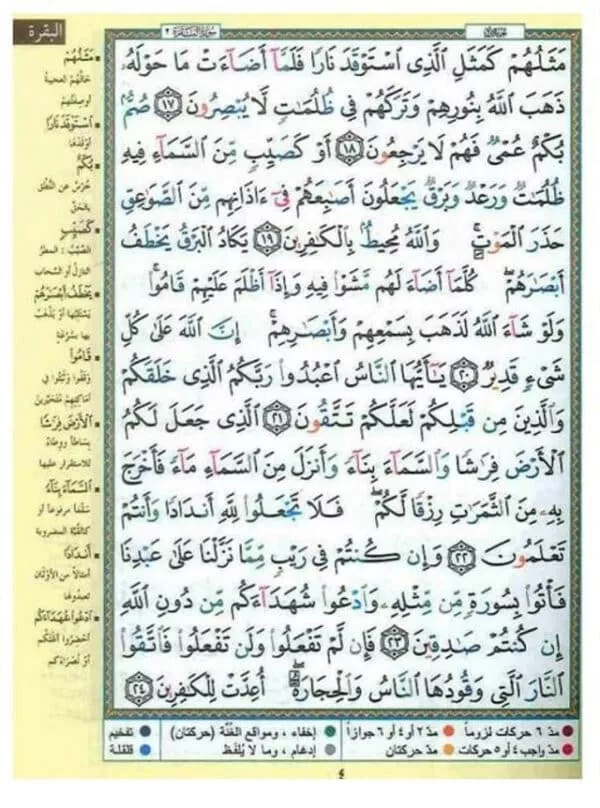 البقرة
سورة البقرة ٢
مَثَلُهُمْ كَمَثَلِ ٱلَّذِى ٱسْتَوْقَدَ نَارًا فَلَمَّآ أَضَآءَتْ مَا حَوْلَهُۥ
ذَهَبَ ٱللَّهُ بِنُورِهِمْ وَتَرَكَهُمْ فِى ظُلُمَٰتٍ لَّا يُبْصِرُونَ ١٧ صُمٌّۢ
بُكْمٌ عُمْىٌ فَهُمْ لَا يَرْجِعُونَ ١٨ أَوْ كَصَيِّبٍ مِّنَ ٱلسَّمَآءِ فِيهِ
ظُلُمَٰتٌ وَرَعْدٌ وَبَرْقٌ يَجْعَلُونَ أَصَٰبِعَهُمْ فِىٓ ءَاذَانِهِم مِّنَ ٱلصَّوَٰعِقِ
حَذَرَ ٱلْمَوْتِ ۚ وَٱللَّهُ مُحِيطٌۢ بِٱلْكَٰفِرِينَ ١٩ يَكَادُ ٱلْبَرْقُ يَخْطَفُ
أَبْصَٰرَهُمْ ۖ كُلَّمَآ أَضَآءَ لَهُم مَّشَوْا۟ فِيهِ وَإِذَآ أَظْلَمَ عَلَيْهِمْ قَامُوا۟ ۚ
وَلَوْ شَآءَ ٱللَّهُ لَذَهَبَ بِسَمْعِهِمْ وَأَبْصَٰرِهِمْ ۚ إِنَّ ٱللَّهَ عَلَىٰ كُلِّ
شَىْءٍ قَدِيرٌ ٢٠ يَٰٓأَيُّهَا ٱلنَّاسُ ٱعْبُدُوا۟ رَبَّكُمُ ٱلَّذِى خَلَقَكُمْ
وَٱلَّذِينَ مِن قَبْلِكُمْ لَعَلَّكُمْ تَتَّقُونَ ٢١ ٱلَّذِى جَعَلَ لَكُمُ
ٱلْأَرْضَ فِرَٰشًا وَٱلسَّمَآءَ بِنَآءً وَأَنزَلَ مِنَ ٱلسَّمَآءِ مَآءً فَأَخْرَجَ
بِهِۦ مِنَ ٱلثَّمَرَٰتِ رِزْقًا لَّكُمْ ۖ فَلَا تَجْعَلُوا۟ لِلَّهِ أَندَادًا وَأَنتُمْ
تَعْلَمُونَ ٢٢ وَإِن كُنتُمْ فِى رَيْبٍ مِّمَّا نَزَّلْنَا عَلَىٰ عَبْدِنَا
فَأْتُوا۟ بِسُورَةٍ مِّن مِّثْلِهِۦ وَٱدْعُوا۟ شُهَدَآءَكُم مِّن دُونِ ٱللَّهِ
إِن كُنتُمْ صَٰدِقِينَ ٢٣ فَإِن لَّمْ تَفْعَلُوا۟ وَلَن تَفْعَلُوا۟ فَٱتَّقُوا۟
ٱلنَّارَ ٱلَّتِى وَقُودُهَا ٱلنَّاسُ وَٱلْحِجَارَةُ ۖ أُعِدَّتْ لِلْكَٰفِرِينَ ٢٤
مَثَلُهُمْ
حالُهُم العجيبة
أو صِفَتُهم
ٱسْتَوْقَدَ نَارًا
أوْقَدَها
بُكْمٌ
خُرْسٌ عن النُّطْقِ
بالحقّ
كَصَيِّبٍ
الصَّيِّبُ : المطَرُ
النازلُ أو السَّحَاب
يَخْطَفُ أَبْصَٰرَهُمْ
يَسْتَلِبُها أو يَذْهَبُ
بها بسُرْعَةٍ
قَامُوا۟
وَقَفُوا وثَبَتُوا في
أماكِنِهم مُتَحَيِّرين
ٱلْأَرْضَ فِرَٰشًا
بِسَاطاً ووِطَاءً
للاستقرارِ عليها
ٱلسَّمَآءَ بِنَآءً
سَقْفاً مرفوعاً أو
كالقُبَّةِ المضروبة
أَندَادًا
أمثالاً من الأوْثَانِ
تعبدُونها
ٱدْعُوا۟ شُهَدَآءَكُم
أحْضِرُوا آلِهَتَكُم
أو نُصَرَاءَكُم
مدّ ٦ حركات لزوماً مدّ ٢ أو ٤ أو ٦ جوازاً إخفاء ، ومواقع الغُنَّة (حركتان) تفخيم
مدّ واجب ٤ أو ٥ حركات مدّ حركتان إدغام ، وما لا يُلفَظ قلقلة
٤